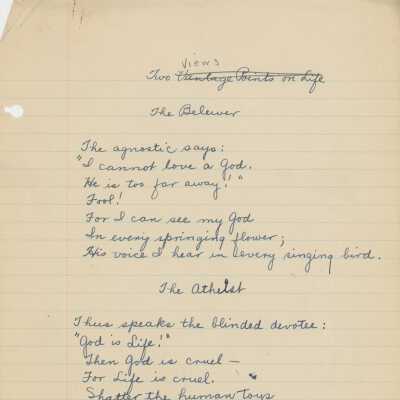 views
Two Vantage Points on Life
The Believer
The agnostic says:
"I cannot love a God.
He is too far away!"
Fool!
For I can see my God
In every springing flower;
His voice I hear in every singing bird.
The Atheist
Thus speaks the blinded devotee:
"God is Life!"
Then God is cruel —
For Life is cruel.
Shatter the human toys